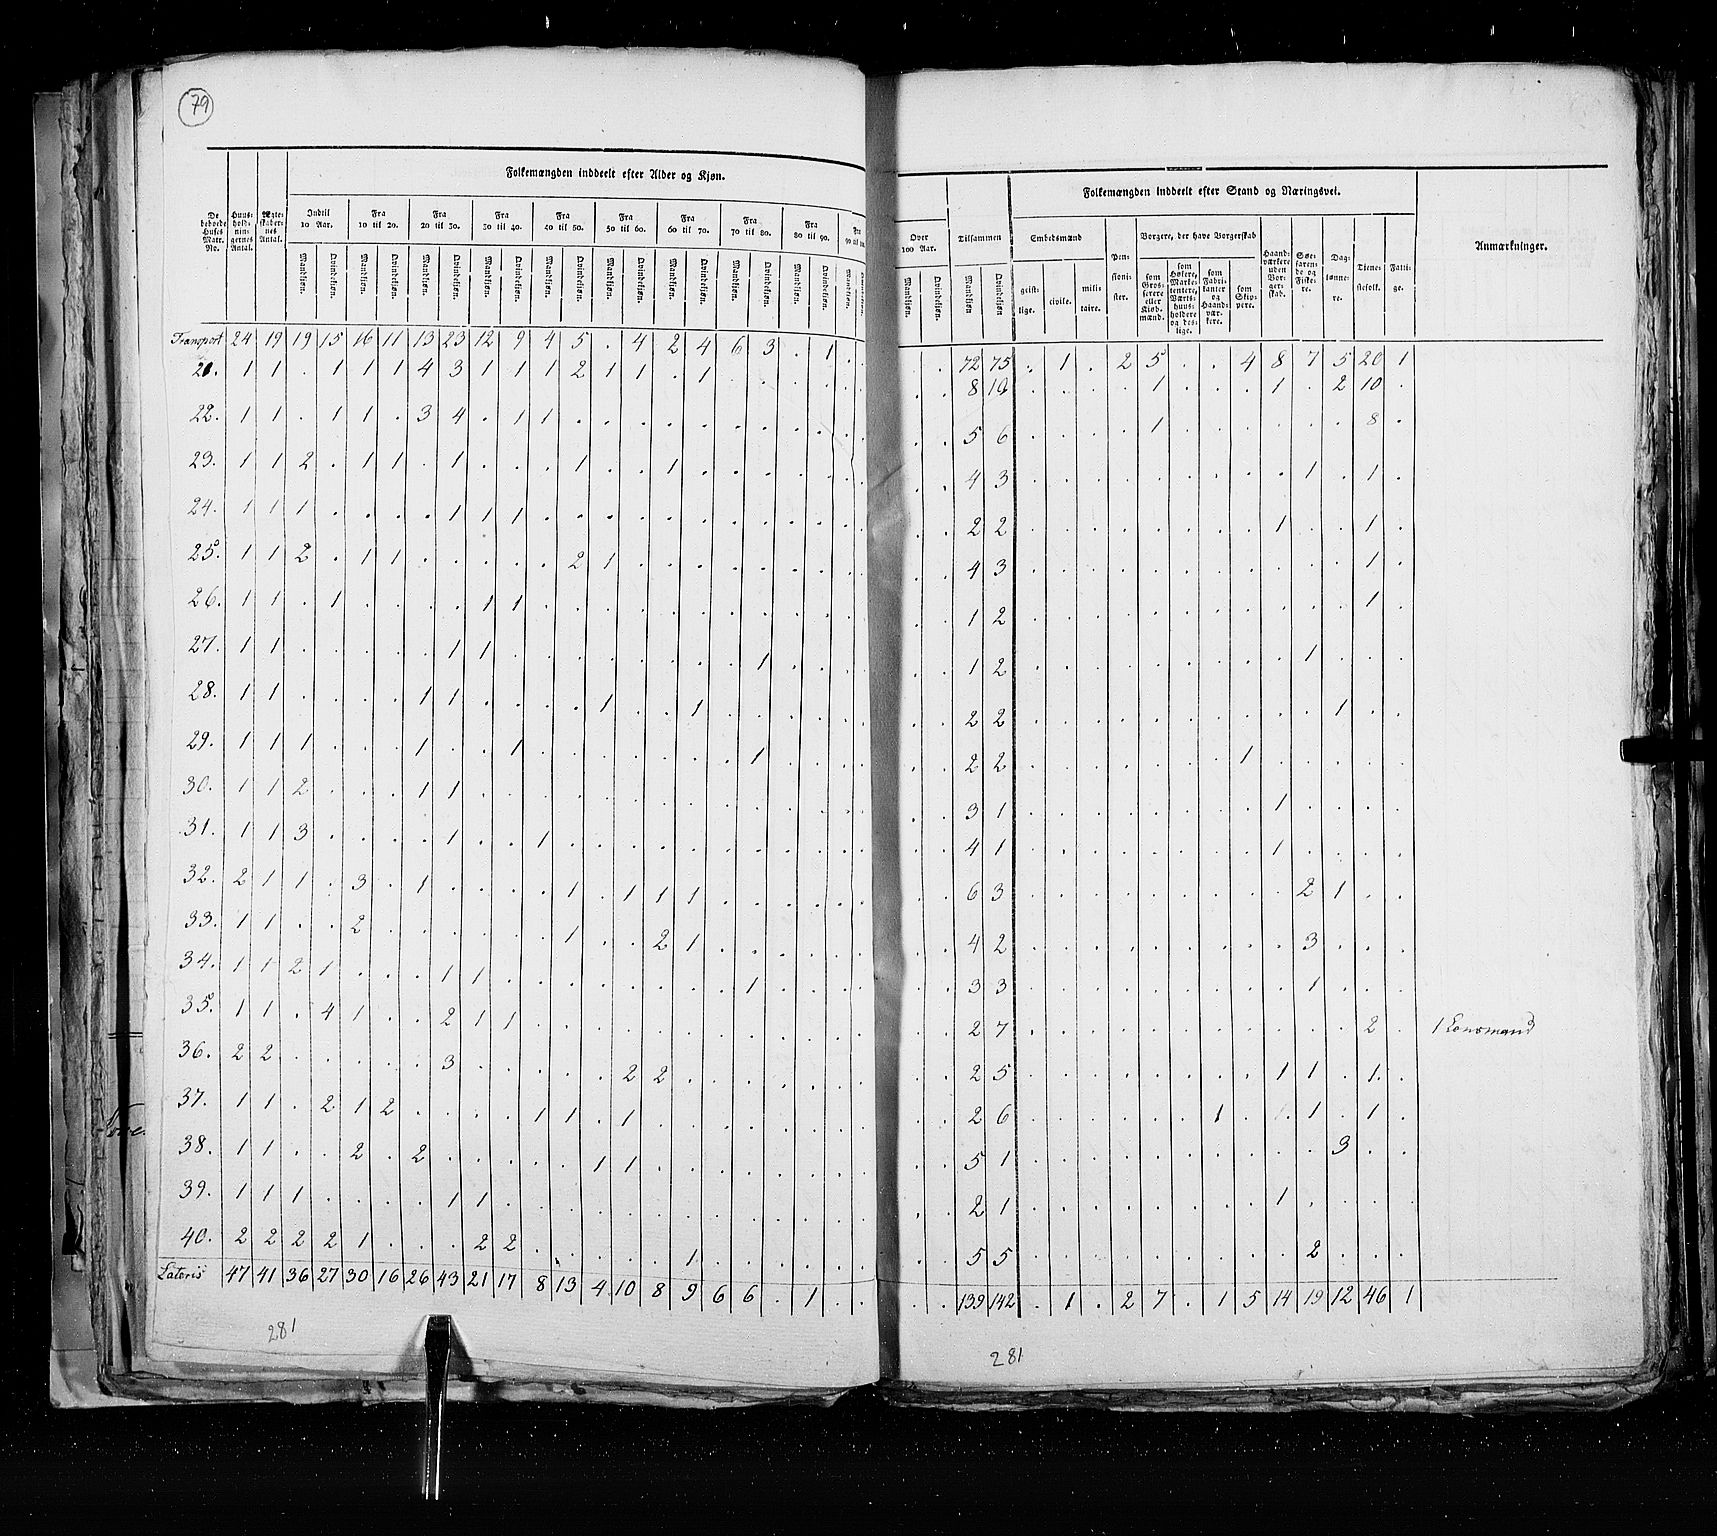 79
Folkemængden inddeelt efter Alder og Kjøn.
Folkemængden inddeelt efter Stand og Næringsvei.
De beboede Huses Matr. No.
Huusholdningernes Antal.
Ægteskabernes Antal.
Indtil 10 Aar.
Fra 10 til 20.
Fra 20 til 30.
Fra 30 til 40.
Fra 40 til 50.
Fra 50 til 60.
Fra 60 til 70.
Fra 70 til 80.
Fra 80 til 90.
Over 100 Aar.
Tilsammen
Mandkjøn. Qvindekjøn.
Embedsmænd
geistlige. civile. militaire.
Pensionister.
Borgere, der have Borgerskab
som Grosserere eller Kjøbmænd.
som Høkere, Marketentere, Værtshuusholdere og desl.
som Fabrikanter og Haandværkere.
som Skippere.
Haandværkere uden Borgerskab.
Søefarende og Fiskere.
Daglønnere.
Tjenestefolk.
Fattige.
Anmærkninger.
Transport 24 19 19 15 16 11 13 23 12 9 4 5 . 4 2 4 6 3 . 1 . . . 72 75 . 1 . 2 5 . . 4 8 7 5 20 1
21. 1 1 . 1 1 1 4 3 1 1 1 2 1 1 . 1 . . . . . . . 8 10 . . . . 1 . . . 1 . 2 10 .
22. 1 1 . 1 1 . 3 4 . 1 1 . . . . . . . . . . . . 5 6 . . . . 1 . . . . . . 8 .
23. 1 1 2 . 1 1 . 1 . . . 1 . . 1 . . . . . . . . 4 3 . . . . . . . . . 1 . 1 .
24. 1 1 1 . . . . 1 1 1 . . . . . . . . . . . . . 2 2 . . . . . . . . 1 . . 1 .
25. 1 1 2 . 1 1 . . . . . 2 1 . . . . . . . . . . 4 3 . . . . . . . . . . . 1 .
26. 1 1 . 1 . . . . 1 1 . . . . . . . . . . . . . 1 2 . . . . . . . . . . . 1 .
27. 1 1 . . . . . 1 1 . . . . . . . . 1 . . . . . 1 2 . . . . . . . . . 1 . . .
28. 1 1 . . . . 1 1 . . . . 1 . . 1 . . . . . . . 2 2 . . . . . . . . . . 1 . .
29. 1 1 1 . . . 1 . . 1 . . . . . . . 1 . . . . . 2 2 . . . . . . . 1 . . . . .
30. 1 1 2 . . . 1 1 . . . . . . . . . . . . . . . 3 1 . . . . . . . . 1 . . . .
31. 1 1 3 . . . . 1 . . 1 . . . . . . . . . . . . 4 1 . . . . . . . . 1 . . . .
32. 2 1 1 . 3 . 1 . . . . 1 . 1 1 1 . . . . . . . 6 3 . . . . . . . . . 2 1 . .
33. 1 1 . . 2 . . . . . . 1 . . 2 1 . . . . . . . 4 2 . . . . . . . . . 3 . . .
34. 1 1 2 1 . . . 1 1 . . . . . . . . 1 . . . . . 3 3 . . . . . . . . . 1 . . .
35. 1 1 . 4 1 . . 2 1 1 . . . . . . . . . . . . . 2 7 . . . . . . . . . . . 2 . 1 Lonsmand
36. 2 2 . . . . . 3 . . . . . 2 2 . . . . . . . . 2 5 . . . . . . . . 1 1 . 1 .
37. 1 1 . 2 1 2 . . . . 1 1 . 1 . . . . . . . . . 2 6 . . . . . . 1 . . 1 . 1 .
38. 1 1 . . 2 . 2 . . . . . 1 1 . . . . . . . . . 5 1 . . . . . . . . . . 3 . .
39. 1 1 1 . . . . 1 1 . . . . . . . . . . . . . . 2 1 . . . . . . . . 1 . . . .
40. 2 2 2 2 1 . . . 2 2 . . . . . 1 . . . . . . . 5 5 . . . . . . . . . 2 . . .
Lateris 47 41 36 27 30 16 26 43 21 17 8 13 4 10 8 9 6 6 . 1 . . . 139 142 . 1 . 2 7 . 1 5 14 19 12 46 1
281
281